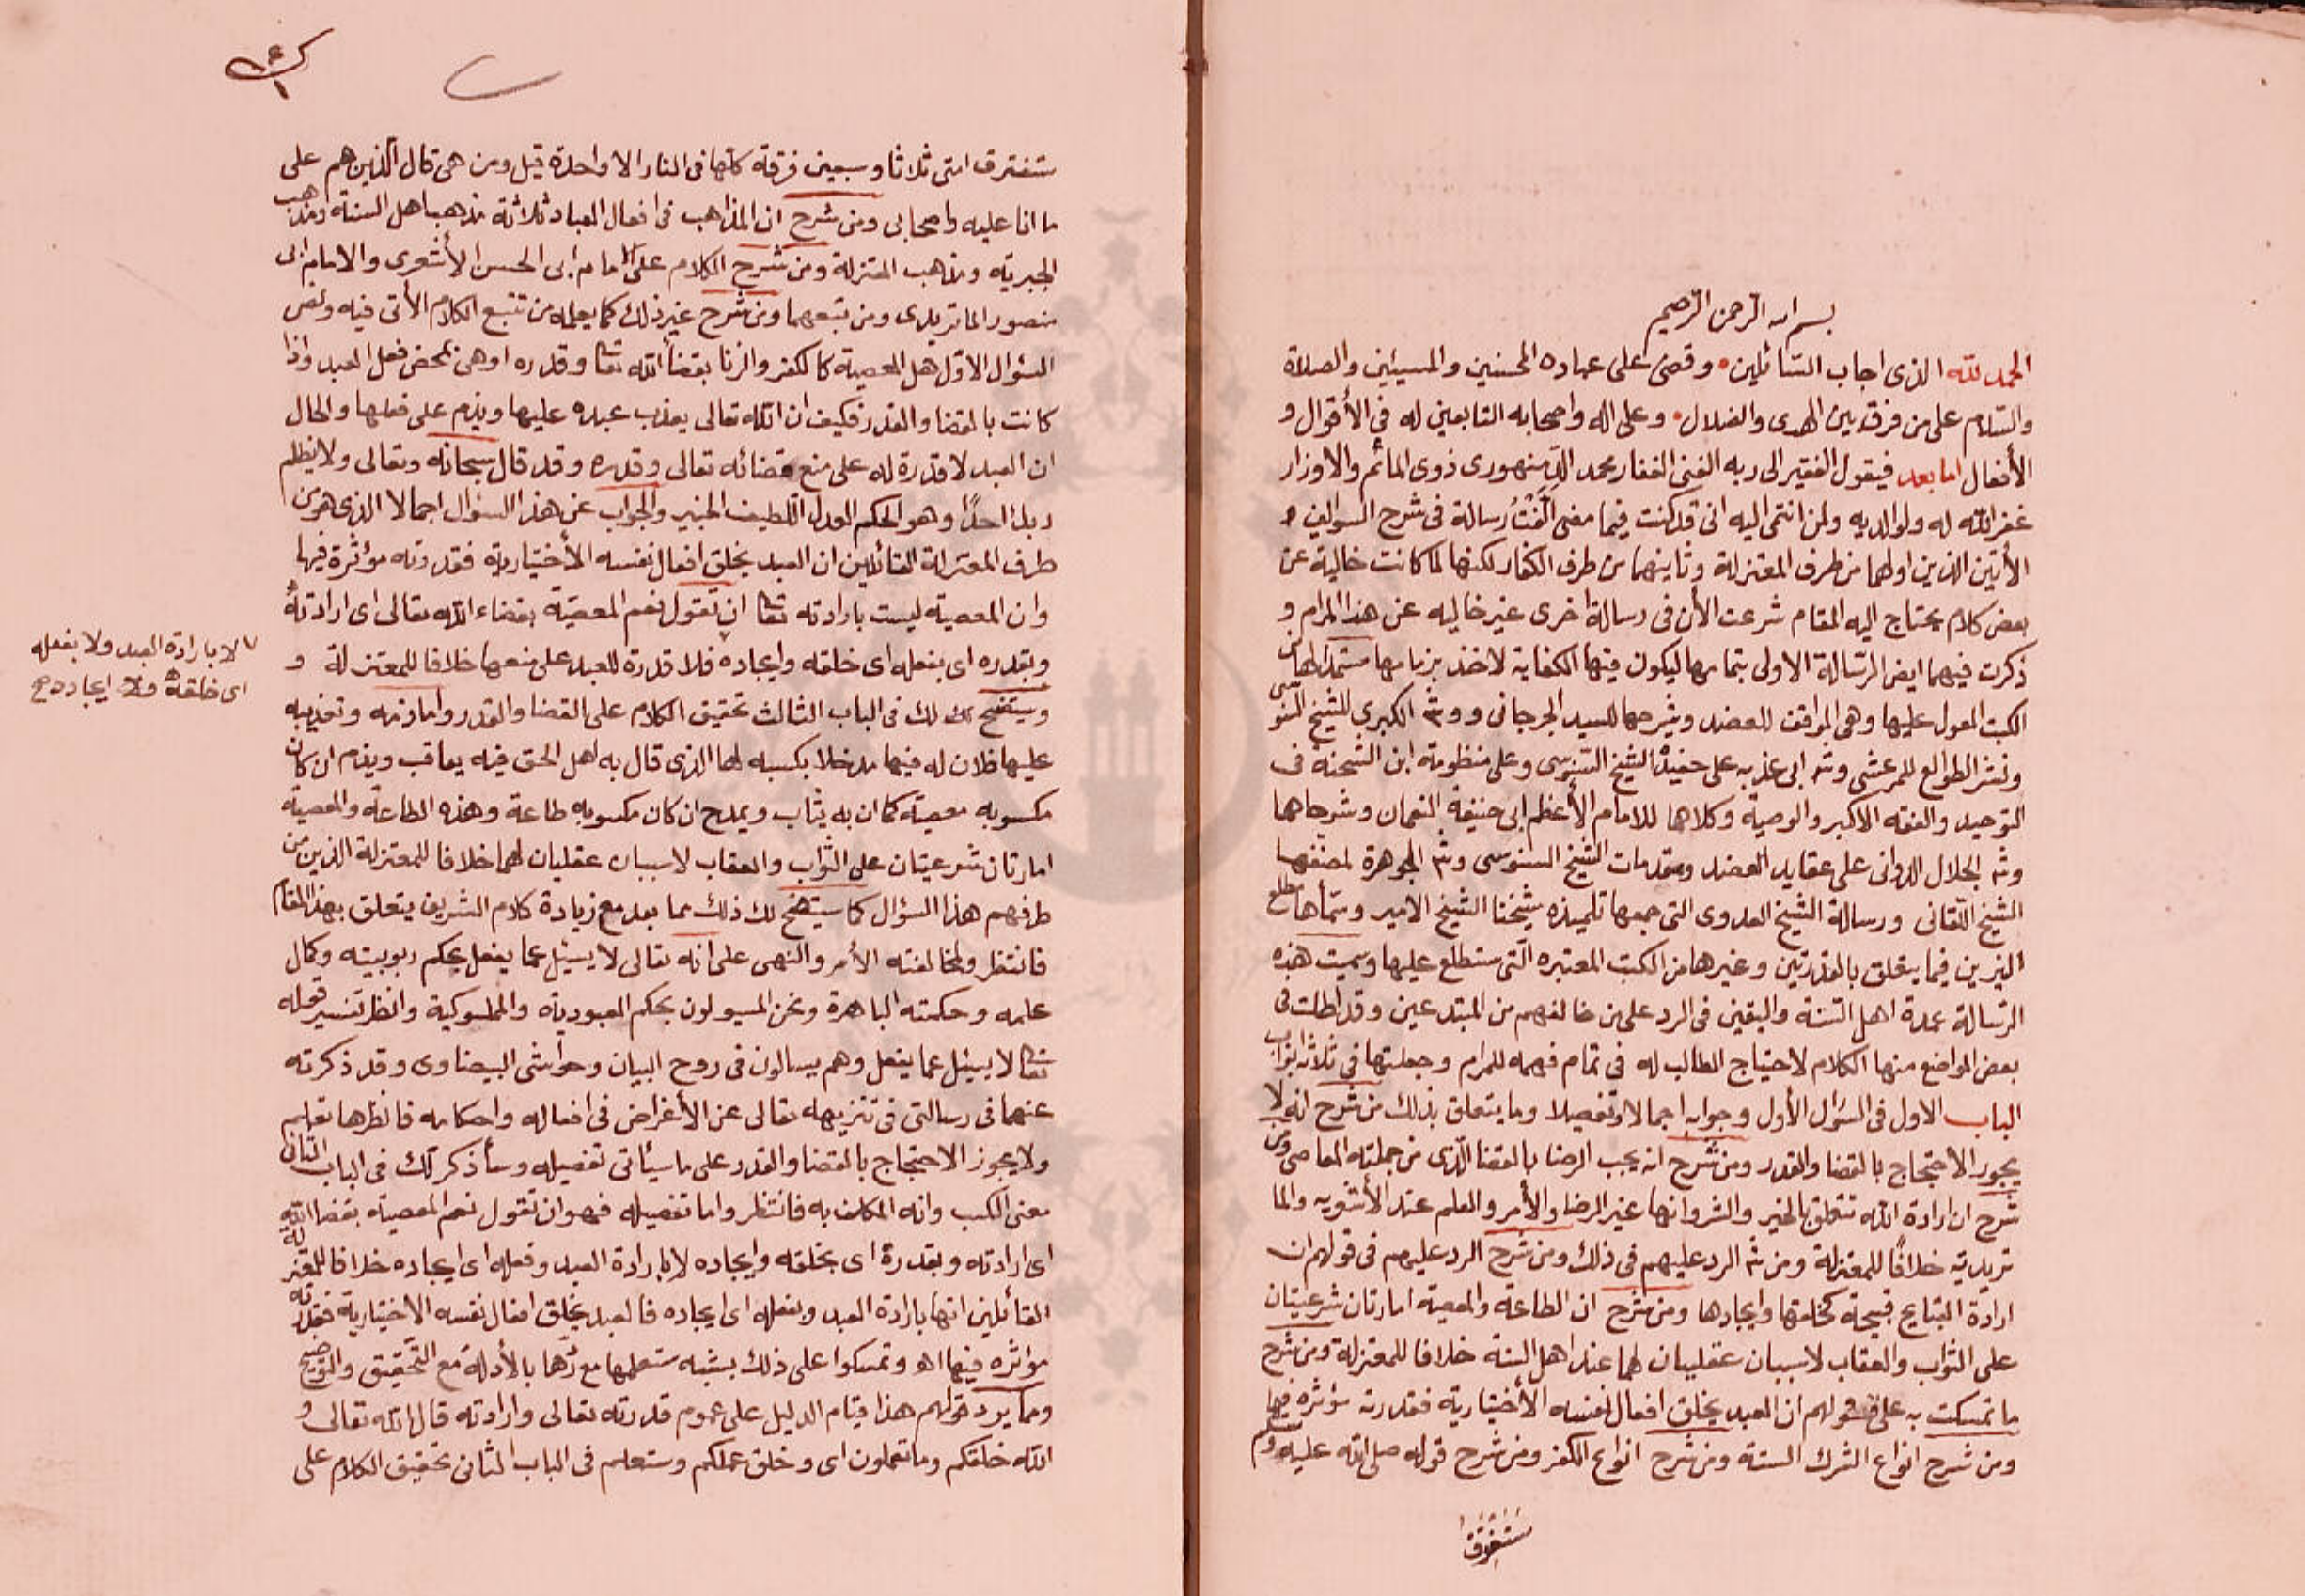 بسم الله الرحمن الرحيم
الحمد لله الذى اجاب السّائلين وقضى على عباده المحسنين والمسيئين والصلاة
والسّلام على من فرق بين الهدى والضلال وعلى اله واصحابه التابعين له فى الأقوال و
الأفعال اما بعد فيقول الفقير الى ربه الغنى الغفار محمد الدّمنهورى ذوى المأثم والاوزار
غفر الله له ولوالديه ولمن انتمى اليه انى قد كنت فيما مضى الّفتُ رسالة فى شرح السوالين
الأتيين الذين اولهما من طرف المعتزلة وثانيهما من طرف الكفار لكنها لما كانت خالية عن
بعض كلام يحتاج اليه المقام شرعت الأن فى رسالة اخرى غير خاليه عن هذا المرام و
ذكرت فيهما ايض الرّسالة الاولى بتمامها ليكون فيها الكفاية لاخذ بزمامها مستمدا لها من
الكتب المعول عليها وهى المواقف للعضد وشرحها للسيد الجرجانى وشه الكبرى للشيخ السنوسى
ونشر الطوالع للمرعشى وشه ابى عذبه على حفيدة الشيخ السّنوسى وعلى منظومة ابن الشحنة فى
التوحيد والفقه الاكبر والوصية وكلاهما للامام الأعظم ابى حنيفة النعمان وشرحاهما
وشه الجلال الدوانى على عقايد العضد ومقدمات الشيخ السنوسى وشه الجوهرة لمصنفها
الشيخ اللّقانى ورسالة الشيخ العدوى التى جمعها تلميذه شيخنا الشيخ الامير وسمّاها مطلع
النيرين فيما يتعلق بالقدرتين وغيرها من الكتب المعتبره الّتى ستطلع عليها وسميت هذه
الرّسالة عمدة اهل السّنة واليقين فى الرد على من خالفهم من المبتدعين وقد اطلت فى
بعض المواضع منها الكلام لاحتياج الطالب له فى تمام فهمه للمرام وجعلتها فى ثلاثة ابواب
الباب الاول فى السّؤال الأول وجوابه اجمالا وتفصيلا وما يتعلق بذلك من شرح انه لا
يجوز الاحتجاج بالقضا والقدر ومن شرح انه يجب الرضا بالقضا الّذى من جملته المعاصى ومن
شرح ان ارادة الله تتعلق بالخير والشر وانها غير الرضا والأمر والعلم عند الأشعريه والما
تريدية خلافًا للمعتزلة ومن شه الرد عليهم فى ذلك ومن شرح الرد عليهم فى قولهم ان
ارادة القبايح قبيحة كخلقها وايجادها ومن شرح ان الطاعة والمعصية امارتان شرعيتان
على الثواب والعقاب لاسببان عقليان لهما عند اهل السنة خلافا للمعتزلة ومن شرح
ما تمسكت به على قولهم ان العبد يخلق افعال نفسه الأختيارية فقدرته مؤثره فيها
ومن شرح انواع الشرك الستة ومن شرح انواع الكفر ومن شرح قوله صلى الله عليه وسلم
ستفترق
ستفترق امتى ثلاثا وسبعين فرقة كلّها فى النار الا واحدة قيل ومن هى قال الّذين هم على
ما انا عليه واصحابى ومن شرح ان المذاهب فى افعال العباد ثلاثة مذهب اهل السنة ومذهب
الجبرية ومذهب المعتزلة ومن شرح الكلام على الامام ابى الحسن الأشعرى والامام ابى
منصور الماتريدى ومن تبعهما ومن شرح غير ذلك كما يعلمه من تتبع الكلام الأتى فيه ونص
السّؤال الاوّل هل المعصية كالكفر والزنا بقضاء الله تعا وقدره او هى بمحض فعل العبد واذا
كانت بالقضا والقدر فكيف ان الله تعالى يعذب عبده عليها ويذم على فعلها والحال
ان العبد لا قدرة له على منع قضائه تعالى وقدره وقد قال سبحانه وتعالى ولا يظلم
ربك احدًا وهو الحكم العدل اللّطيف الخبير والجواب عن هذا السؤال اجمالا الذى هو من
طرف المعتزلة القائلين ان العبد يخلق افعال نفسه الأختيارية فقدرته مؤثرة فيها
وان المعصية ليست بارادته تعا ان تقول نعم المعصيّة بقضاء الله تعالى اى ارادته
وبقدره اى بفعله اى خلقه وايجاده فلا قدرة للعبد على منعها خلافا للمعتزلة و
لا بارادة العبد ولا بفعله
اى خلقه ولا ايجاده صح
وسيتضح لك فى الباب الثالث تحقيق الكلام على القضا والقدر واما ذمه وتعذيبه
عليها فلان له فيها مدخلا بكسبه لها الذى قال به اهل الحق فبه يعاقب ويذم ان كان
مكسوبه معصية كما ان به يثاب ويمدح ان كان مكسوبه طاعة وهذه الطاعة والمعصية
امارتان شرعيتان على الثواب والعقاب لاسببان عقليان لهما خلافا للمعتزلة الذين من
طرفهم هذا السؤال كما سيتضح لك ذلك مما بعد مع زيادة كلام الشريف يتعلق بهذا المقام
فانتظر ولمخالفته الأمر والنهى على انه تعالى لا يسئل عما يفعل بحكم ربوبيته وكمال
علمه وحكمته الباهرة ونحن المسيولون بحكم العبودية والمملوكية وانظر تفسير قوله
تعا لا يسئل عما يفعل وهم يسالون فى روح البيان وحواشى البيضاوى وقد ذكرته
عنهما فى رسالتى فى تنزيهه تعالى عن الأغراض فى افعاله واحكامه فانظرها تعلم
ولا يجوز الاحتجاج بالقضا والقدر على ما سيأتى تفصيله وسأذكر لك فى الباب الثانى
معنى الكسب وانه المكلف به فانتظر واما تفصيله فهو ان تقول نعم المعصية بقضا الله
اى ارادته وبقدرة اى بخلقه وايجاده لا بارادة العبد وفعله اى ايجاده خلافا للمعتزلة
القائلين انها بارادة العبد وبفعله اى ايجاده فالعبد يخلق افعال نفسه الاختيارية فقدرته
مؤثره فيها اه وتمسكوا على ذلك بشبه ستعلمها مع ردّها بالأدلة مع التّحقيق والتوضيح
ومما يرد قولهم هذا قيام الدليل على عموم قدرته تعالى وارادته قال الله تعالى و
الله خلقكم وما تعملون اى وخلق عملكم وستعلم فى الباب الثانى تحقيق الكلام على